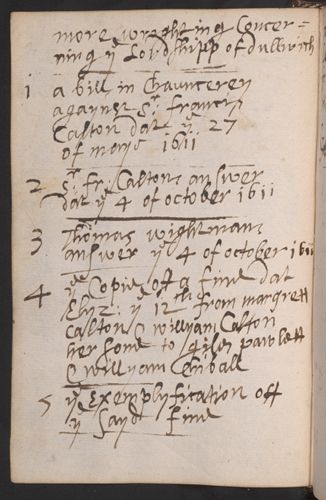 more wrighting Concer=
ning yᵉ Lordshipp of dullwich
1 a bill in Chauncerey
agaynst Sʳ francis
Calton dat yᵉ 27
of maye 1611
2 Sʳ fr: Caltons answer
dat yᵉ 4 of october 1611
3 Thomas wightmans
answer yᵉ 4 of october 1611
4 yᵉ Copie off a fine dat
Eliz: yᵉ 12ᵗʰ from margrett
Calton & willyam Calton
her sone to gyles pawlett
& willyam kendall
5 yᵉ Exemplyfication off
yᵉ sayd fine